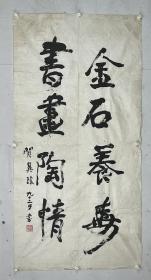 金石養壽
書畫陶情